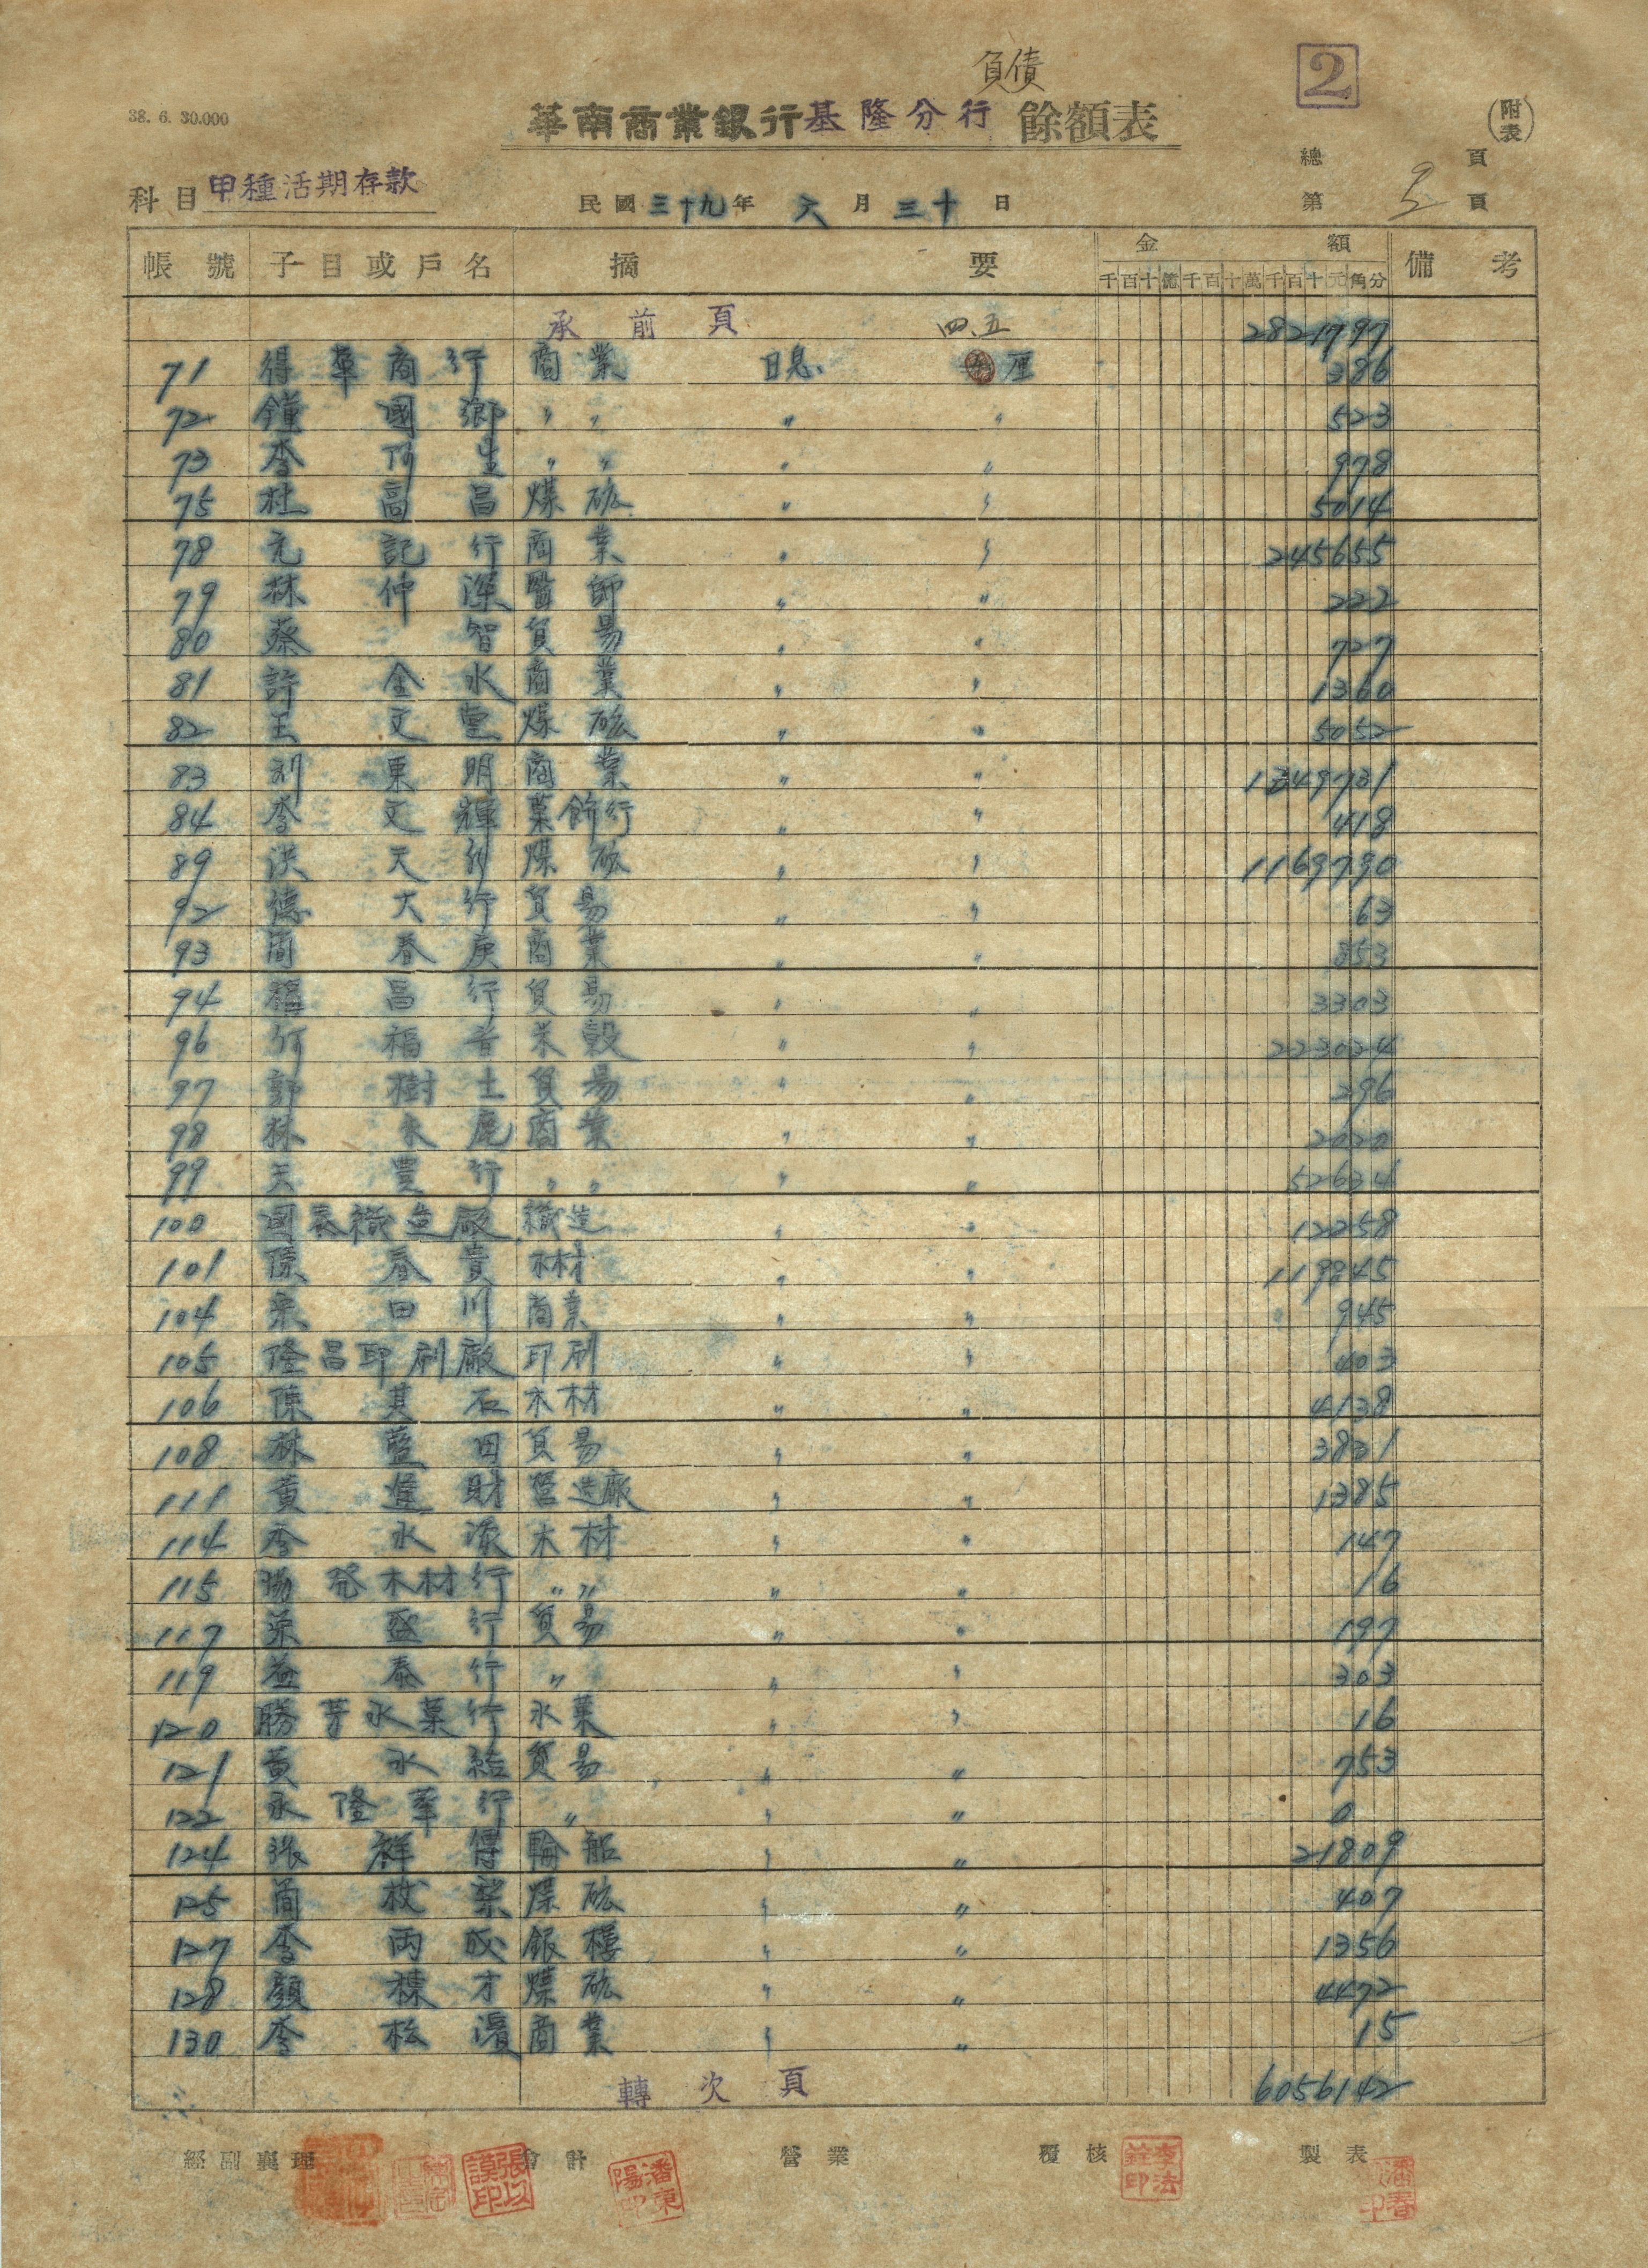 負債
2
38. 6. 30.000
華南商業銀行基隆分行 餘額表
(附表)
總 頁
科目 甲種活期存款
民國三十九年 六月三十日
第 頁
帳號 子目或戶名 摘要 金額 備考
千百十億千百十萬千百十元角分
承前頁 四.五 2821797
71 得華商行 商業 日息 厘 386
72 鐘國鄉 〃〃 〃 〃 523
73 李阿生 〃〃 〃 〃 978
75 杜高昌 煤砿 〃 〃 5014
78 元記行 商業 〃 〃 245655
79 林仲 醫師 〃 〃 222
80 蔡智 貿易 〃 〃 727
81 許金水 商業 〃 〃 1360
82 王文 煤砿 〃 〃 5052
83 明 商業 〃 〃 1349731
84 李文輝 菓餅行 〃 〃 418
89 洪天 煤砿 〃 〃 1169790
92 德大行 貿易 〃 〃 63
93 簡春庚 商業 〃 〃 853
94 福昌行 貿易 〃 〃 3303
96 何福 米穀 〃 〃 223024
97 郭樹土 貿易 〃 〃 296
98 林 商業 〃 〃 2020
99 天豐行 〃〃 〃 〃 52634
100 國泰織造廠 織造 〃 〃 12258
101 陳春貴 木材 〃 〃 119245
104 田川 商業 〃 〃 945
105 隆昌印刷廠 印刷 〃 〃 403
106 陳其石 木材 〃 〃 4138
108 林藍田 貿易 〃 〃 3831
111 黃財 營造廠 〃 〃 1385
114 李水 木材 〃 〃 147
115 發木材行 〃〃 〃 〃 16
117 榮盛行 貿易 〃 〃 197
119 益泰行 〃 〃 〃 303
120 勝芳氷菓行 氷菓 〃 〃 16
121 黃永 貿易 〃 〃 753
122 永隆華行 〃 〃 〃 0
124 張祥傳 輪船 〃 〃 21809
125 簡枚 煤砿 〃 〃 407
127 李丙成 銀樓 〃 〃 1356
128 顏棟才 煤砿 〃 〃 4472
130 李松 商業 〃 〃 15
轉次頁 6056142
經副襄理 會計 營業 覆核 製表
張以謨印
潘東陽印
李法銓印
潘春印